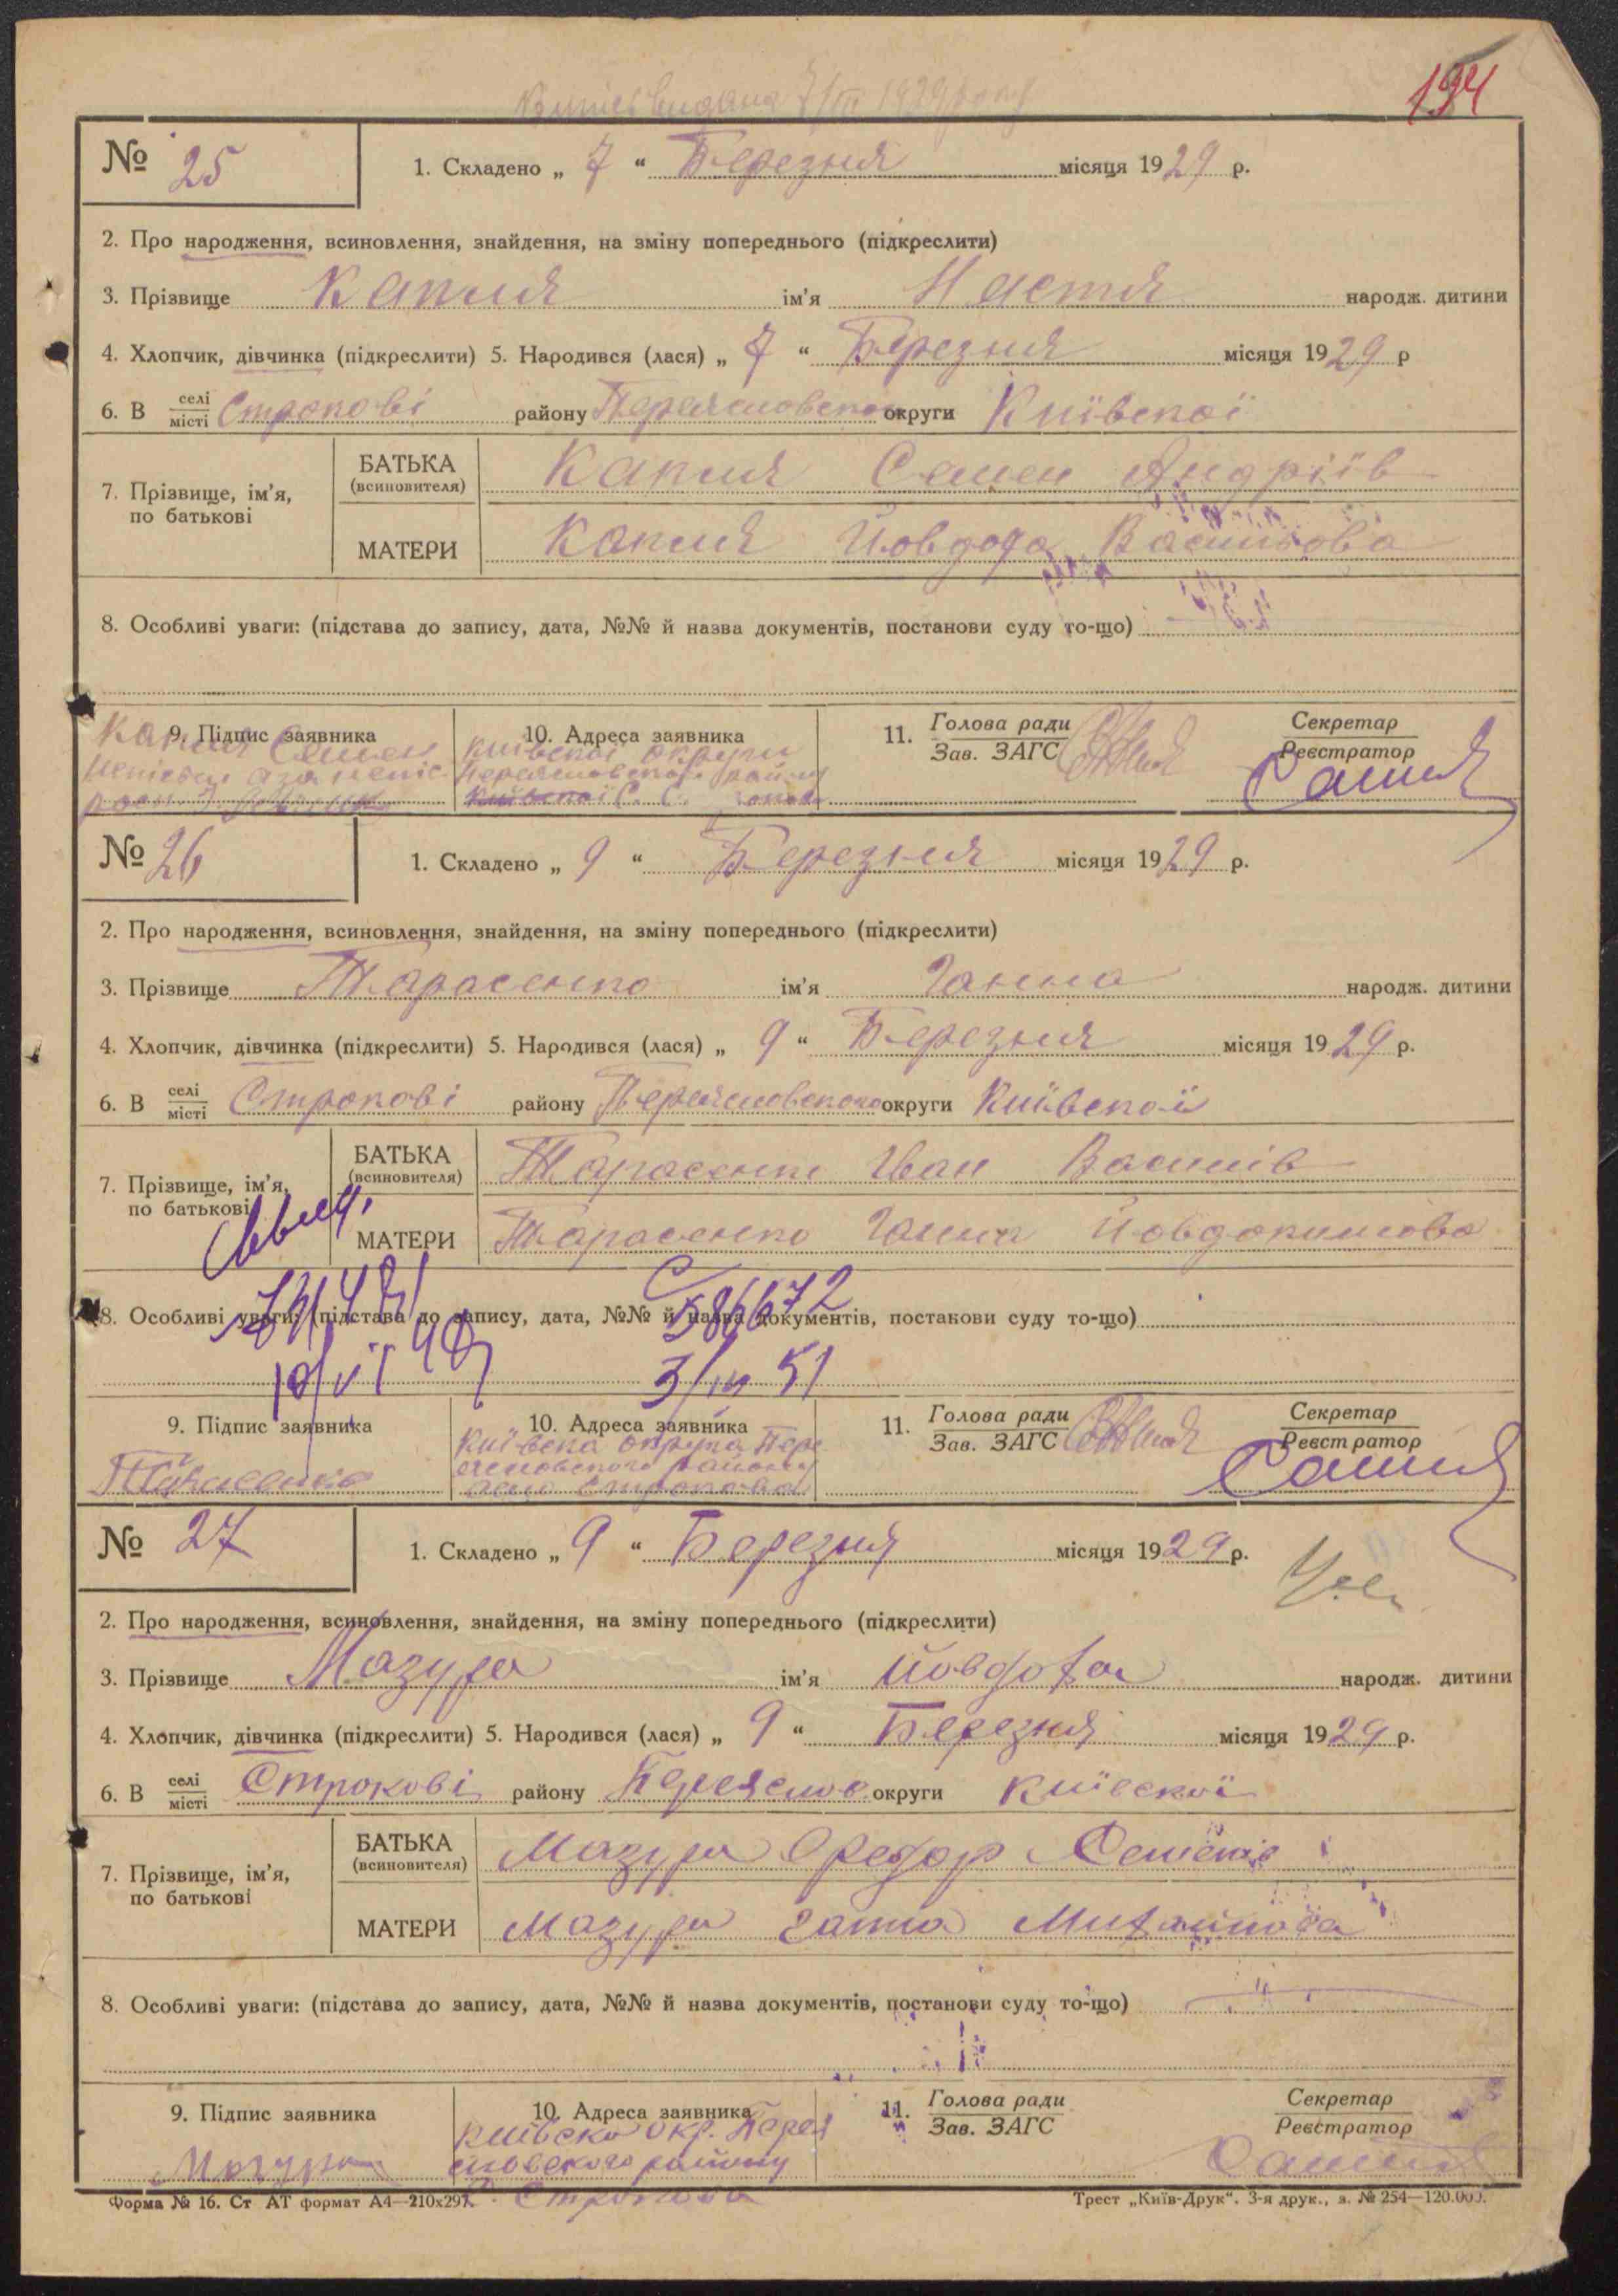 Копію видано 7/III 1929 року
194
№ 25
1. Складено „ 7 “ Березня місяця 1929 р.
2. Про народження, всиновлення, знайдення, на зміну попереднього (підкреслити)
3. Прізвище Капля ім'я Настя народж. дитини
4. Хлопчик, дівчинка (підкреслити) 5. Народився (лася) „ 7 “ Березня місяця 1929 р
6. В селі/місті Строкові району Переясловського округи Київскої
7. Прізвище, ім'я, по батькові
БАТЬКА (всиновителя) Капля Семен Андріїв
МАТЕРИ Капля Йовдоха Василова
8. Особливі уваги: (підстава до запису, дата, №№ й назва документів, постанови суду то-що)
9. Підпис заявника
Капля Семен
10. Адреса заявника
Київскої округи
Переясловского району
11. Голова ради
Зав. ЗАГС
Секретар
Реєстратор
№ 26
1. Складено „ 9 “ Березня місяця 1929 р.
2. Про народження, всиновлення, знайдення, на зміну попереднього (підкреслити)
3. Прізвище Тарасенко ім'я Ганна народж. дитини
4. Хлопчик, дівчинка (підкреслити) 5. Народився (лася) „ 9 “ Березня місяця 1929 р.
6. В селі/місті Строкові району Переясловского округи Київскої
7. Прізвище, ім'я, по батькові
БАТЬКА (всиновителя) Тарасенко Іван Василів
МАТЕРИ Тарасенко Ганна Йовдокимова
8. Особливі уваги: (підстава до запису, дата, №№ й назва документів, постанови суду то-що)
586672
3/IV 51
9. Підпис заявника
Тарасенко
10. Адреса заявника
Київска округа Пере
ясловского району
село Строкова
11. Голова ради
Зав. ЗАГС
Секретар
Реєстратор
№ 27
1. Складено „ 9 “ Березня місяця 1929 р.
2. Про народження, всиновлення, знайдення, на зміну попереднього (підкреслити)
3. Прізвище Мазура ім'я Йовдоха народж. дитини
4. Хлопчик, дівчинка (підкреслити) 5. Народився (лася) „ 9 “ Березня місяця 1929 р.
6. В селі/місті Строкові району Переяслов округи Київскої
7. Прізвище, ім'я, по батькові
БАТЬКА (всиновителя) Мазура Федор Семенів
МАТЕРИ Мазура Ганна Михайлова
8. Особливі уваги: (підстава до запису, дата, №№ й назва документів, постанови суду то-що)
9. Підпис заявника
Мазура
10. Адреса заявника
Київско окр. Перея
словского району
с. Строкова
11. Голова ради
Зав. ЗАГС
Секретар
Реєстратор
Форма № 16. Ст АТ формат А4—210х297.
Трест „Київ-Друк“. 3-я друк., з. № 254—120.000.